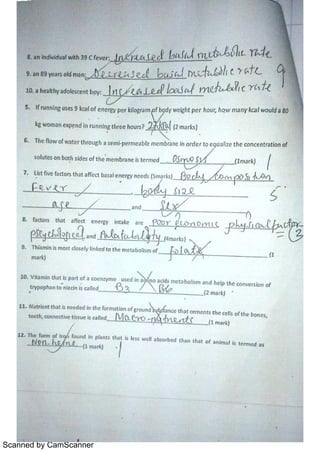 8. an individual with 39 C fever: Increased basal metabolic rate
9. an 89 years old man: Decreased basal metabolic rate 9
10. a healthy adolescent boy: Increased basal metabolic rate
5. If running uses 9 kcal of energy per kilogram of body weight per hour, how many kcal would a 80
kg woman expend in running three hours? (2 marks)
6. The flow of water through a semi-permeable membrane in order to equalize the concentration of
solutes on both sides of the membrane is termed Osmosis (1mark)
7. List five factors that affect basal energy needs (5marks) Body composition
Fever, body size 5
age and Sex
8. factors that affect energy intake are Poor economic, physical factor
Psychological and Palatability (4marks) 3
9. Thiamin is most closely linked to the metabolism of folate (1
mark)
10. Vitamin that is part of a coenzyme used in amino acids metabolism and help the conversion of
trypophan to niacin is called B3 B6 (2 mark)
11. Nutrient that is needed in the formation of ground substance that cements the cells of the bones,
teeth, connective tissue is called Macro-nutrients (1 mark)
12. The form of iron found in plants that is less well absorbed than that of animal is termed as
Non heme (1 mark)
Scanned by CamScanner